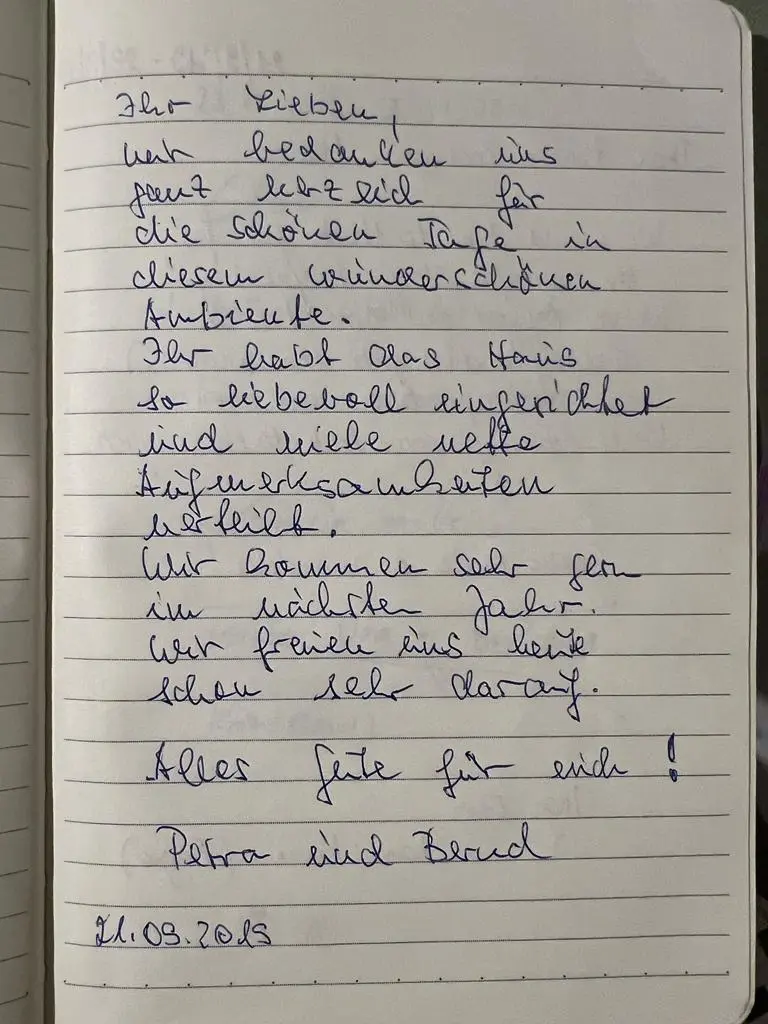 Ihr Lieben,
wir bedanken uns
ganz herzlich für
die schönen Tage in
diesem wunderschönen
Ambiente.
Ihr habt das Haus
so liebevoll eingerichtet
und viele nette
Aufmerksamkeiten
verteilt.
Wir kommen sehr gern
im nächsten Jahr.
Wir freuen uns heute
schon sehr darauf.
Alles Gute für euch!
Petra und Bernd
21.09.2019